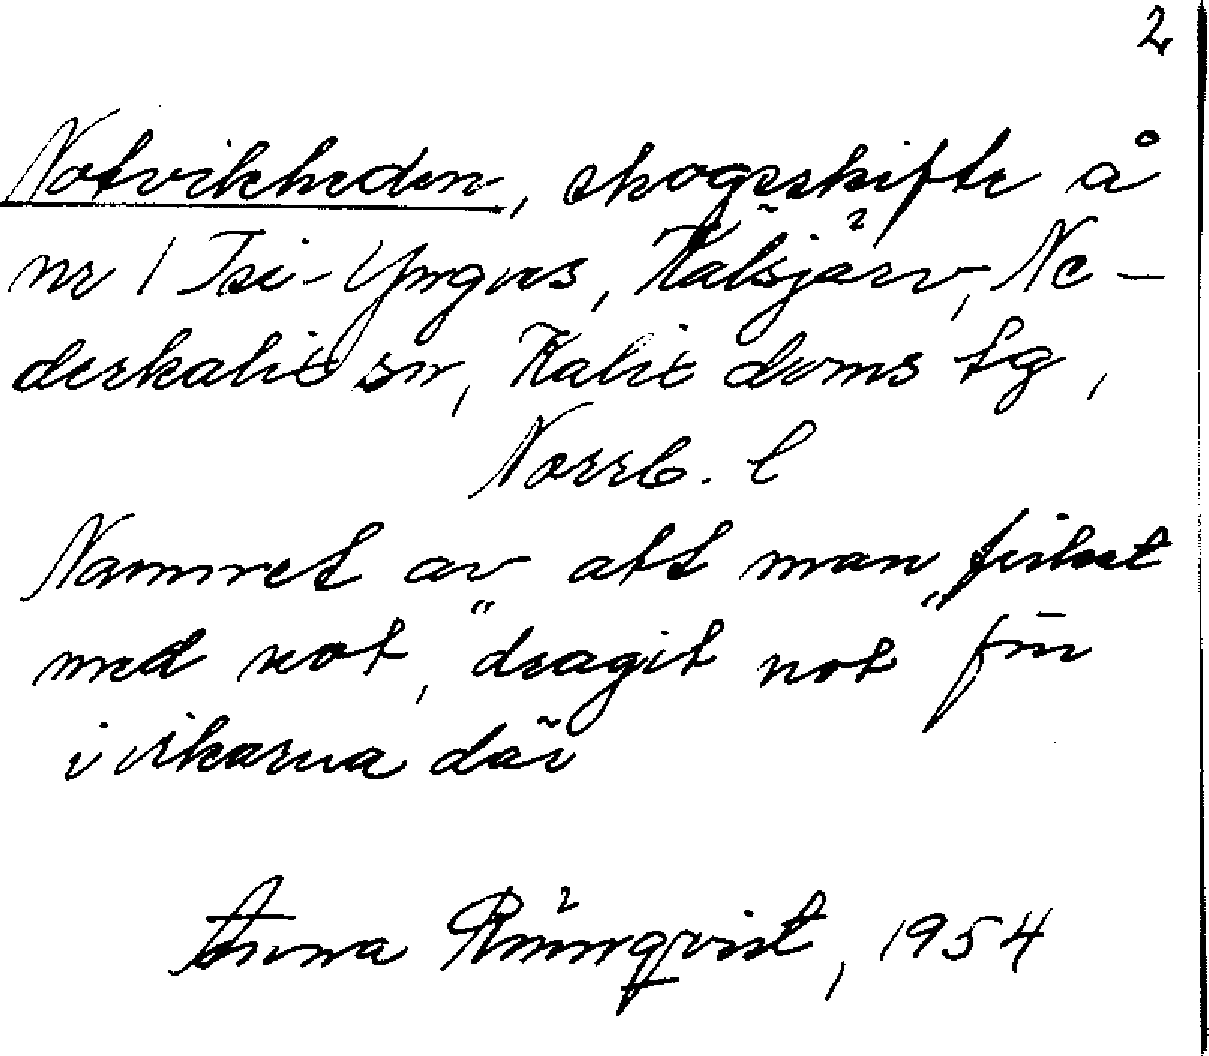 2
Notvikheden, skogsskifte å
nr 1 Isi-Yngves, Kälsjärv, Ne-
derkalix sn, Kalix doms tg,
Norrb. l
Namnet av att man fiskat
med not, "dragit not" förr
i vikarna där
Anna Rönnqvist, 1954